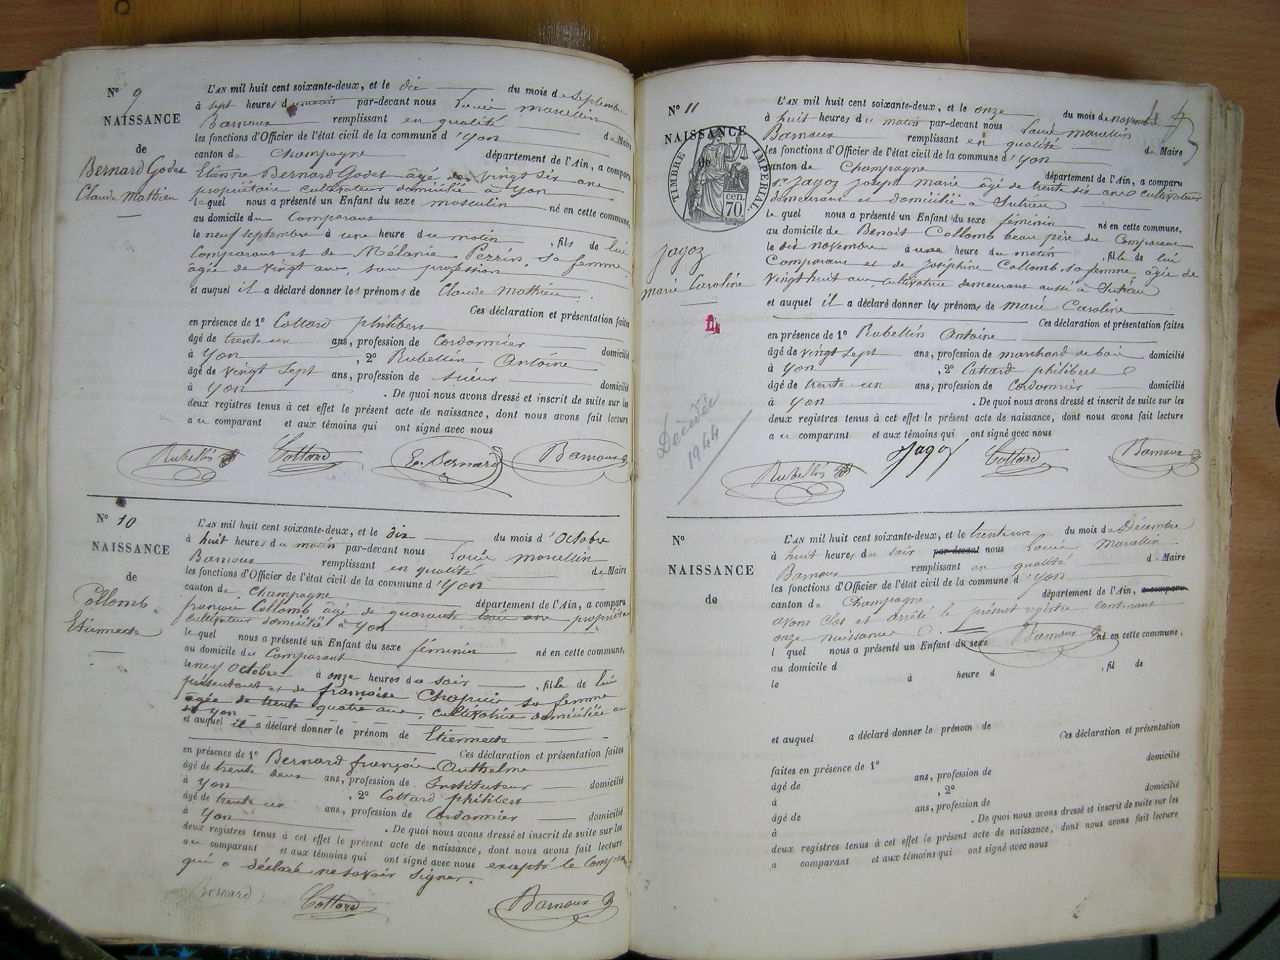 N° 9
NAISSANCE
de
Bernard Godet
Claude Mathieu
L'AN mil huit cent soixante-deux, et le dix du mois de Septembre
à sept heures du matin par-devant nous Louis Marcellin
Barnoux remplissant en qualité de Maire
les fonctions d'Officier de l'état civil de la commune d'Yon
canton de Champagne département de l'Ain, a comparu
Etienne Bernard Godet âgé de vingt six ans
propriétaire cultivateur domicilié à Yon
lequel nous a présenté un Enfant du sexe masculin né en cette commune,
au domicile du Comparant
le neuf septembre à une heure du matin, fils de lui
Comparant et de Mélanie Perrin, sa femme,
âgée de vingt ans, sans profession
et auquel il a déclaré donner les prénoms de Claude Mathieu.
Ces déclaration et présentation faites
en présence de 1° Cottard philibert
âgé de trente un ans, profession de Cordonnier domicilié
à Yon, 2° Rubellin Antoine
âgé de vingt sept ans, profession de domicilié
à Yon. De quoi nous avons dressé et inscrit de suite sur les
deux registres tenus à cet effet le présent acte de naissance, dont nous avons fait lecture
a u comparant et aux témoins qui ont signé avec nous
Rubellin Cottard Bernard Barnoux
N° 10
NAISSANCE
de
Collomb
Etiennette
L'AN mil huit cent soixante-deux, et le dix du mois d'Octobre
à huit heures du matin par-devant nous Louis Marcellin
Barnoux remplissant en qualité de Maire
les fonctions d'Officier de l'état civil de la commune d'Yon
canton de Champagne département de l'Ain, a comparu
françois Collomb âgé de quarante ans propriétaire
cultivateur domicilié à Yon
le quel nous a présenté un Enfant du sexe féminin né en cette commune,
au domicile du Comparant
le neuf Octobre à onze heures du soir, fille de lui
présentant et de françoise Chapuis sa femme
âgée de trente quatre ans, cultivatrice domiciliée
à Yon
et auquel il a déclaré donner le prénom de Etiennette
Ces déclaration et présentation faites
en présence de 1° Bernard françois Anthelme
âgé de trente deux ans, profession de Instituteur domicilié
à Yon, 2° Cottard philibert
âgé de trente un ans, profession de Cordonnier domicilié
à Yon. De quoi nous avons dressé et inscrit de suite sur les
deux registres tenus à cet effet le présent acte de naissance, dont nous avons fait lecture
a u comparant et aux témoins qui ont signé avec nous excepté le Comparant
qui a déclaré ne savoir signer.
Bernard Cottard Barnoux
N° 11
NAISSANCE
de
TIMBRE IMPÉRIAL
70 CEN.
Jagoz
Marie Caroline
Décédée
1944
L'AN mil huit cent soixante-deux, et le onze du mois de novembre
à huit heures du matin par-devant nous Louis Marcellin
Barnoux remplissant en qualité de Maire
les fonctions d'Officier de l'état civil de la commune d'Yon
canton de Champagne département de l'Ain, a comparu
Sr Jagoz Joseph Marie âgé de trente six ans cultivateur
demeurant et domicilié à Sutrieu
le quel nous a présenté un Enfant du sexe féminin né en cette commune,
au domicile de Benoit Collomb beau père du Comparant
le dix novembre à une heure du matin, fille de lui
Comparant et de Joséphine Collomb, sa femme, âgée de
vingt huit ans cultivatrice demeurant aussi à Sutrieu
et auquel il a déclaré donner les prénoms de Marie Caroline
Ces déclaration et présentation faites
en présence de 1° Rubellin Antoine
âgé de vingt sept ans, profession de marchand de bois domicilié
à Yon, 2° Cottard philibert
âgé de trente un ans, profession de Cordonnier domicilié
à Yon. De quoi nous avons dressé et inscrit de suite sur les
deux registres tenus à cet effet le présent acte de naissance, dont nous avons fait lecture
a u comparant et aux témoins qui ont signé avec nous
Rubellin Jagoz Cottard Barnoux
N°
NAISSANCE
de
L'AN mil huit cent soixante-deux, et le trente un du mois de Décembre
à huit heures du soir par-devant nous Louis Marcellin
Barnoux remplissant en qualité de Maire
les fonctions d'Officier de l'état civil de la commune d'Yon
canton de Champagne département de l'Ain, a comparu
avons clos et arrêté le présent registre contenant
onze naissances Barnoux
l quel nous a présenté un Enfant du sexe né en cette commune,
au domicile d
le à heure d , fil de
et auquel a déclaré donner le prénom de
Ces déclaration et présentation
faites en présence de 1°
âgé de ans, profession de domicilié
à , 2°
âgé de ans, profession de domicilié
à . De quoi nous avons dressé et inscrit de suite sur les
deux registres tenus à cet effet le présent acte de naissance, dont nous avons fait lecture
a comparant et aux témoins qui ont signé avec nous